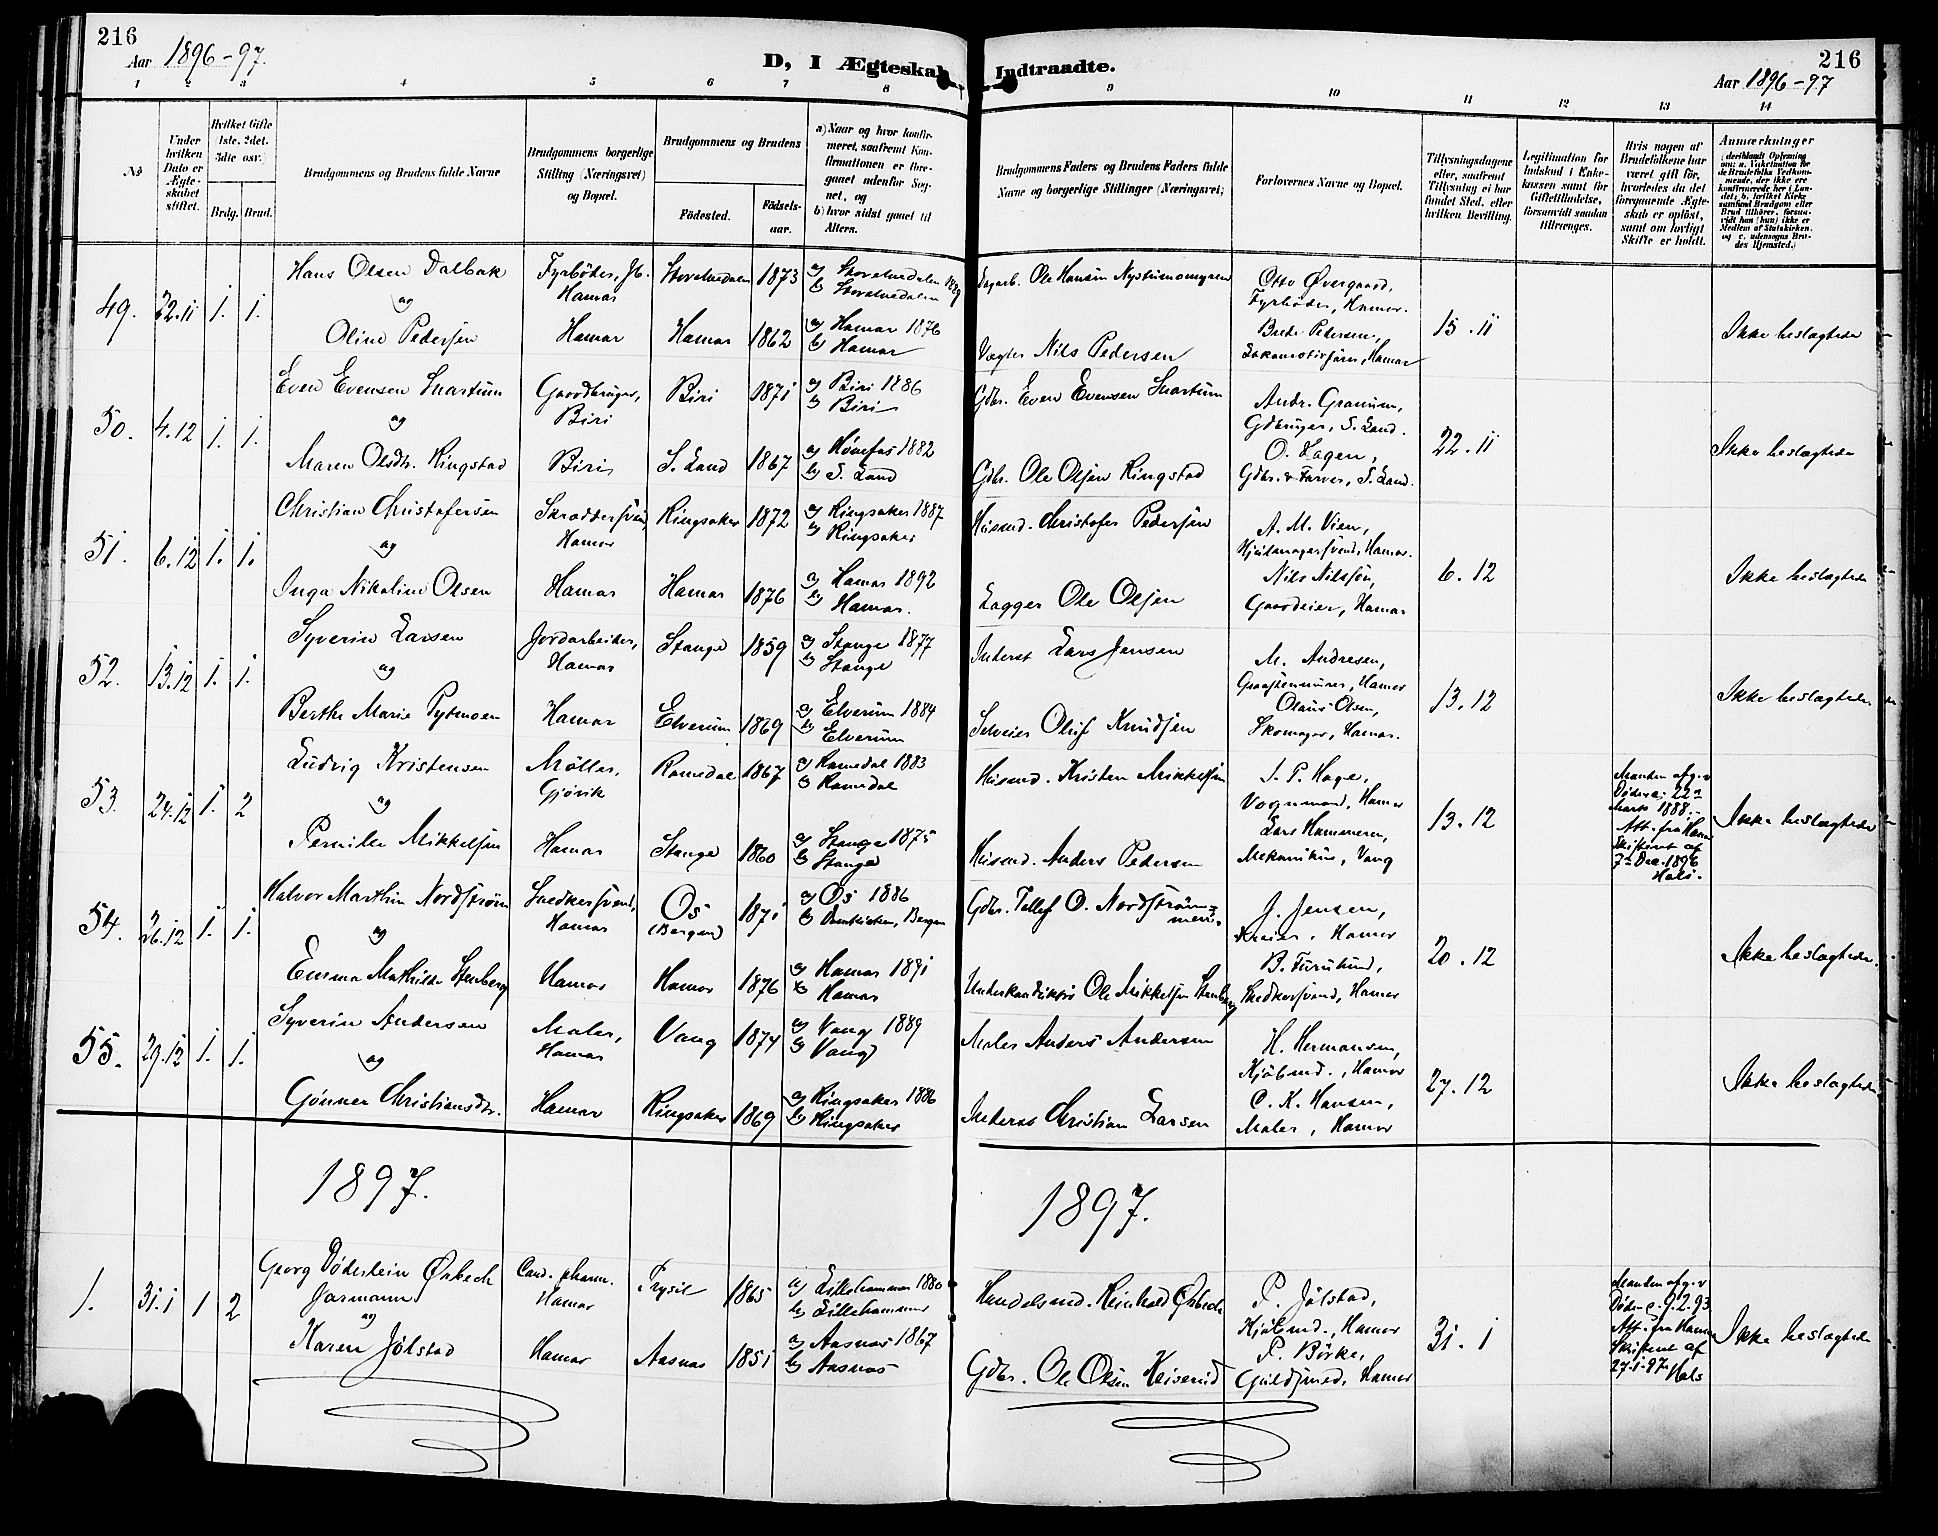 216
Aar 1896-97.
D, I Ægteskab Indtraadte.
216
Aar 1896-97
1 2 3 4 5 6 7 8 9 10 11 12 13 14
No
Under hvilken Dato er Ægteskabet stiftet.
Hvilket Gifte (1ste, 2det, 3die osv.)
Brdg. Brud.
Brudgommens og Brudens fulde Navne
Brudgommens borgerlige Stilling (Næringsvei) og Bopæl.
Brudgommens og Brudens
Födested.
Födsels-aar.
a) Naar og hvor konfirmeret, saafremt Konfirmationen er foregaaet udenfor Sognet, og
b) hvor sidst gaaet til Alters.
Brudgommens Faders og Brudens Faders fulde Navne og borgerlige Stillinger (Næringsvei)
Forlovernes Navne og Bopæl.
Tillysningsdagene eller, saafremt Tillysning ei har fundet Sted, efter hvilken Bevilling.
Legitimation for Indskud i Enkekassen samt for Giftetilladelse, forsaavidt saadan tiltrænges.
Hvis nogen af Brudefolkene har været gift før, hvorledes da det foregaaende Ægteskab er oplöst, samt om lovligt Skifte er holdt.
Anmærkninger
49. 22.11 1. 1.
Hans Olsen Dalbak
og
Oline Pedersen
Fyrbøder, Jb.
Hamar
Hamar
Storelvedalen 1873
Hamar 1862
a) Storelvedalen 1889
b) Storelvedalen
a) Hamar 1876
b) Hamar
Dagarb. Ole Hansen Nystuenomyren
Vægter Nils Pedersen
Otto Øvergaard,
Fyrbøder, Hamar.
Brede Pedersen,
Lokomotivförer, Hamar
15.11
Ikke beslægtede
50. 4.12 1. 1.
Even Evensen Snartum
og
Maren Olsdtr. Ringstad
Gaardbruger,
Biri
Biri
Biri 1871
S. Land 1867
a) Biri 1886
b) Biri
a) Hönefos 1882
b) S. Land
Gdbr. Even Evensen Snartum
Gdbr. Ole Olsen Ringstad
Andr. Granum,
Gdbruger, S. Land.
O. Hagen,
Gdbr. & Farver, S. Land.
22.11
Ikke beslægtede
51. 6.12 1. 1.
Christian Christofersen
og
Inga Nikoline Olsen
Skræddersvend,
Hamar
Hamar
Ringsaker 1872
Hamar 1876
a) Ringsaker 1887
b) Ringsaker
a) Hamar 1892
b) Hamar.
Husmd. Christofer Pedersen
Lægger Ole Olsen
A. M. Vien,
Hjulmagersvend, Hamar.
Nils Nilssön,
Gaardeier, Hamar
6.12
Ikke beslægtede
52. 13.12 1. 1.
Syverin Larsen
og
Berthe Marie Pytmoen
Jordarbeider,
Hamar
Hamar
Stange 1859
Elverum 1869
a) Stange 1877
b) Stange
a) Elverum 1884
b) Elverum
Inderst Lars Jensen
Selveier Oluf Knudsen
M. Andresen,
Graastensmurer, Hamar
Olaus Olsen,
Skomager, Hamar.
13.12
Ikke beslægtede
53. 24.12 1. 2
Ludvig Kristensen
og
Pernille Mikkelsen
Møller,
Gjövik
Hamar
Romedal 1867
Stange 1860
a) Romedal 1883
b) Romedal
a) Stange 1875
b) Stange
Husmd. Kristen Mikkelsen
Husmd. Anders Pedersen
S. P. Hage,
Vognmand, Hamar
Lars Hammeren,
Mekanikus, Vang
13.12
Manden afg. v
Döden 22de
Marts 1888.
Att. fra Hamar
Skifteret af
7de Dec. 1896
Hals.
Ikke beslægtede
54. 26.12 1. 1.
Halvor Marthin Nordström
og
Emma Mathilde Stenberg
Snedkersvend,
Hamar
Hamar
Os
(Bergen) 1871
Hamar 1876
a) Os 1886
b) Domkirken, Bergen
a) Hamar 1891
b) Hamar
Gdbr. Tellef O. Nordström=
men.
Underkonduktör Ole Mikkelsen Stenberg
J. Jensen,
Hamar
B. Furulund,
Snedkersvend, Hamar
20.12
Ikke beslægtede.
55. 29.12 1. 1.
Syverin Andersen
og
Gunner Christiansdtr.
Maler,
Hamar
Hamar
Vang 1874
Ringsaker 1869
a) Vang 1889
b) Vang
a) Ringsaker 1886
b) Ringsaker
Maler Anders Andersen
Inderst Christian Larsen
H. Hermansen,
Kjöbmd., Hamar
C. K. Hansen,
Maler, Hamar
27.12
Ikke beslægtede
1897.
1897.
1. 31.1 1 2
Georg Döderlein Ørbech
Jarmann
og
Karen Jølstad
Cand. pharm.
Hamar
Hamar
Trysil 1865
Aasnes 1851
a) Lillehammer 1880
b) Lillehammer
a) Aasnes 1867
b) Aasnes
Handelsmd. Reinhold Ørbech
Gdbr. Ole Olsen Keiserud
P. Jølstad,
Kjöbmd., Hamar
P. Börke,
Guldsmed, Hamar
31.1
Manden afg. v
Döden 9.2.93
Att. fra Hamar
Skifteret af
27.1.97. Hals
Ikke beslægtede